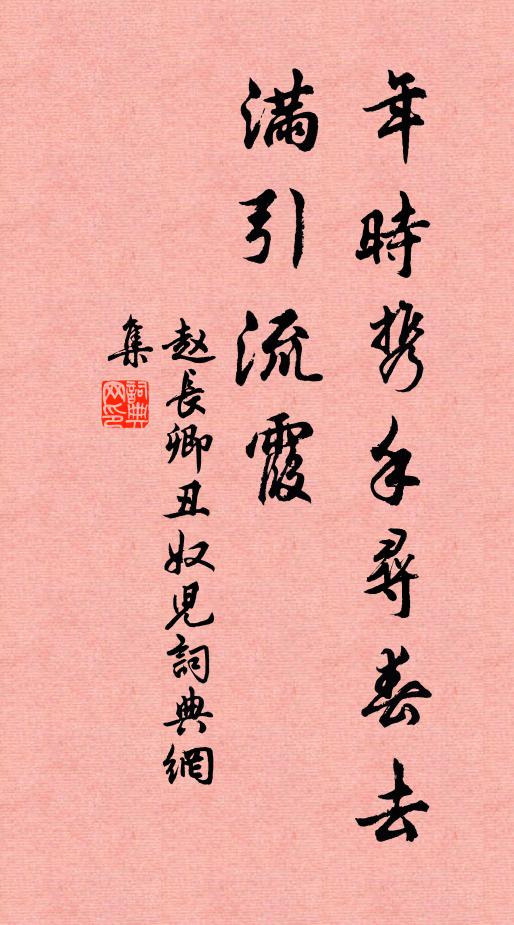 年時携手尋春去
滿引流霞
赵長卿丑奴兒詞典網
集
詞典
网印